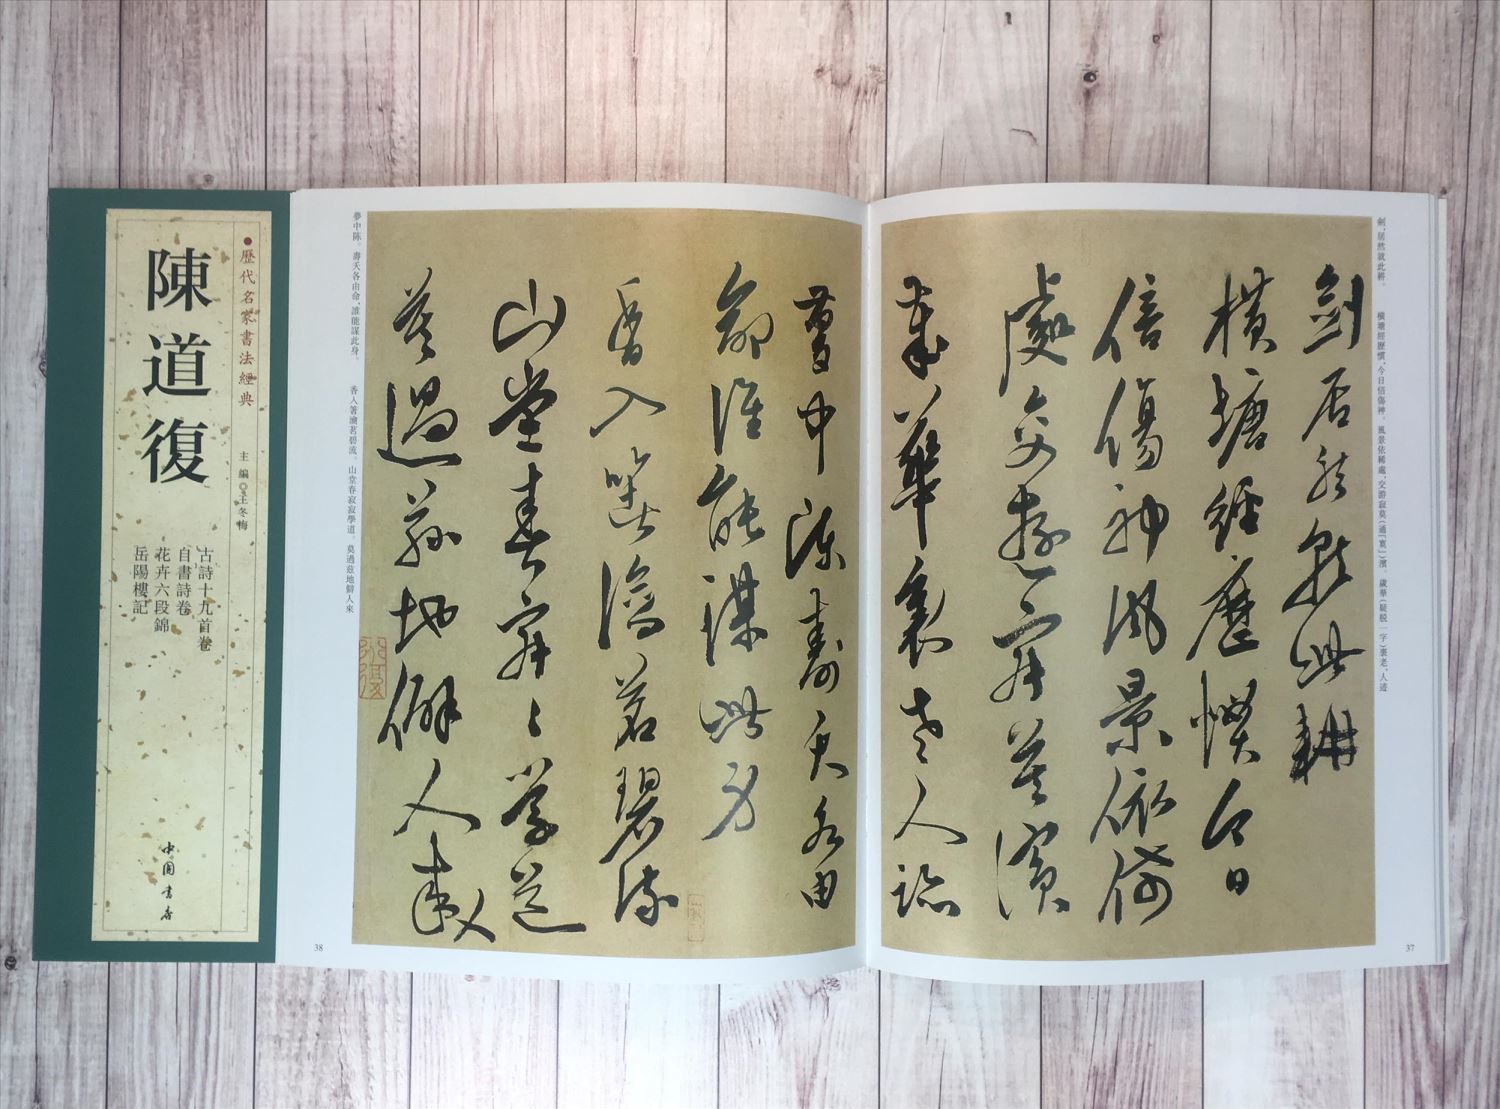 歷代名家書法經典
陳道復
主編◎王冬梅
古詩十九首卷
自書詩卷
花卉六段錦
岳陽樓記
中國書店
劍,居然就此耕。 橫塘經歷慣,今日倍傷神。風景依稀處,交游寂莫(通「寞」)濱。歲華(疑脫一字)衰老,人迹
劍居然就此耕
橫塘經歷慣今日
倍傷神風景依俙
處交遊寂莫濱
歲華衰老人跡
37
夢中陳壽夭各由
命誰能謀此身
香入箸瀹茗碧流
山堂春寂〻學道
莫過茲地僻人來
夢中陳。壽夭各由命,誰能謀此身。 香入箸瀹茗碧流。山堂春寂寂學道。莫過茲地僻人來
38